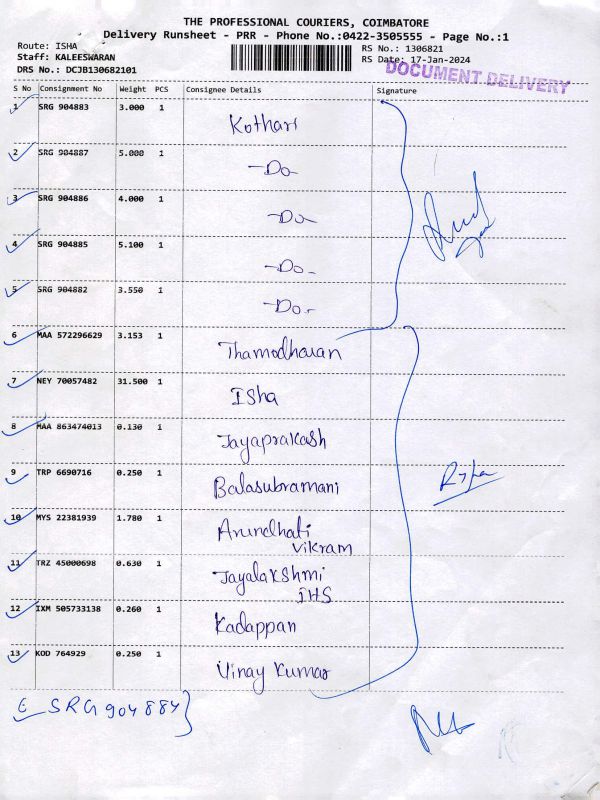 THE PROFESSIONAL COURIERS, COIMBATORE
Delivery Runsheet - PRR - Phone No.:0422-3505555 - Page No.:1
Route: ISHA
Staff: KALEESWARAN
DRS No.: DCJB130682101
RS No.: 1306821
RS Date: 17-Jan-2024
DOCUMENT DELIVERY
S No Consignment No Weight PCS Consignee Details Signature
1 SRG 904883 3.000 1 Kothari
2 SRG 904887 5.000 1 -Do-
3 SRG 904886 4.000 1 -Do-
4 SRG 904885 5.100 1 -Do-
5 SRG 904882 3.550 1 -Do-
6 MAA 572296629 3.153 1 Thamodharan
7 NEY 70057482 31.500 1 Isha
8 MAA 863474013 0.130 1 Jayaprakash
9 TRP 6690716 0.250 1 Balasubramani
10 MYS 22381939 1.780 1 Arundhati
Vikram
11 TRZ 45000698 0.630 1 Jayalakshmi
IHS
12 IXM 505733138 0.260 1 Kadappan
13 KOD 764929 0.250 1 Vinay Kumar
SRG 904884